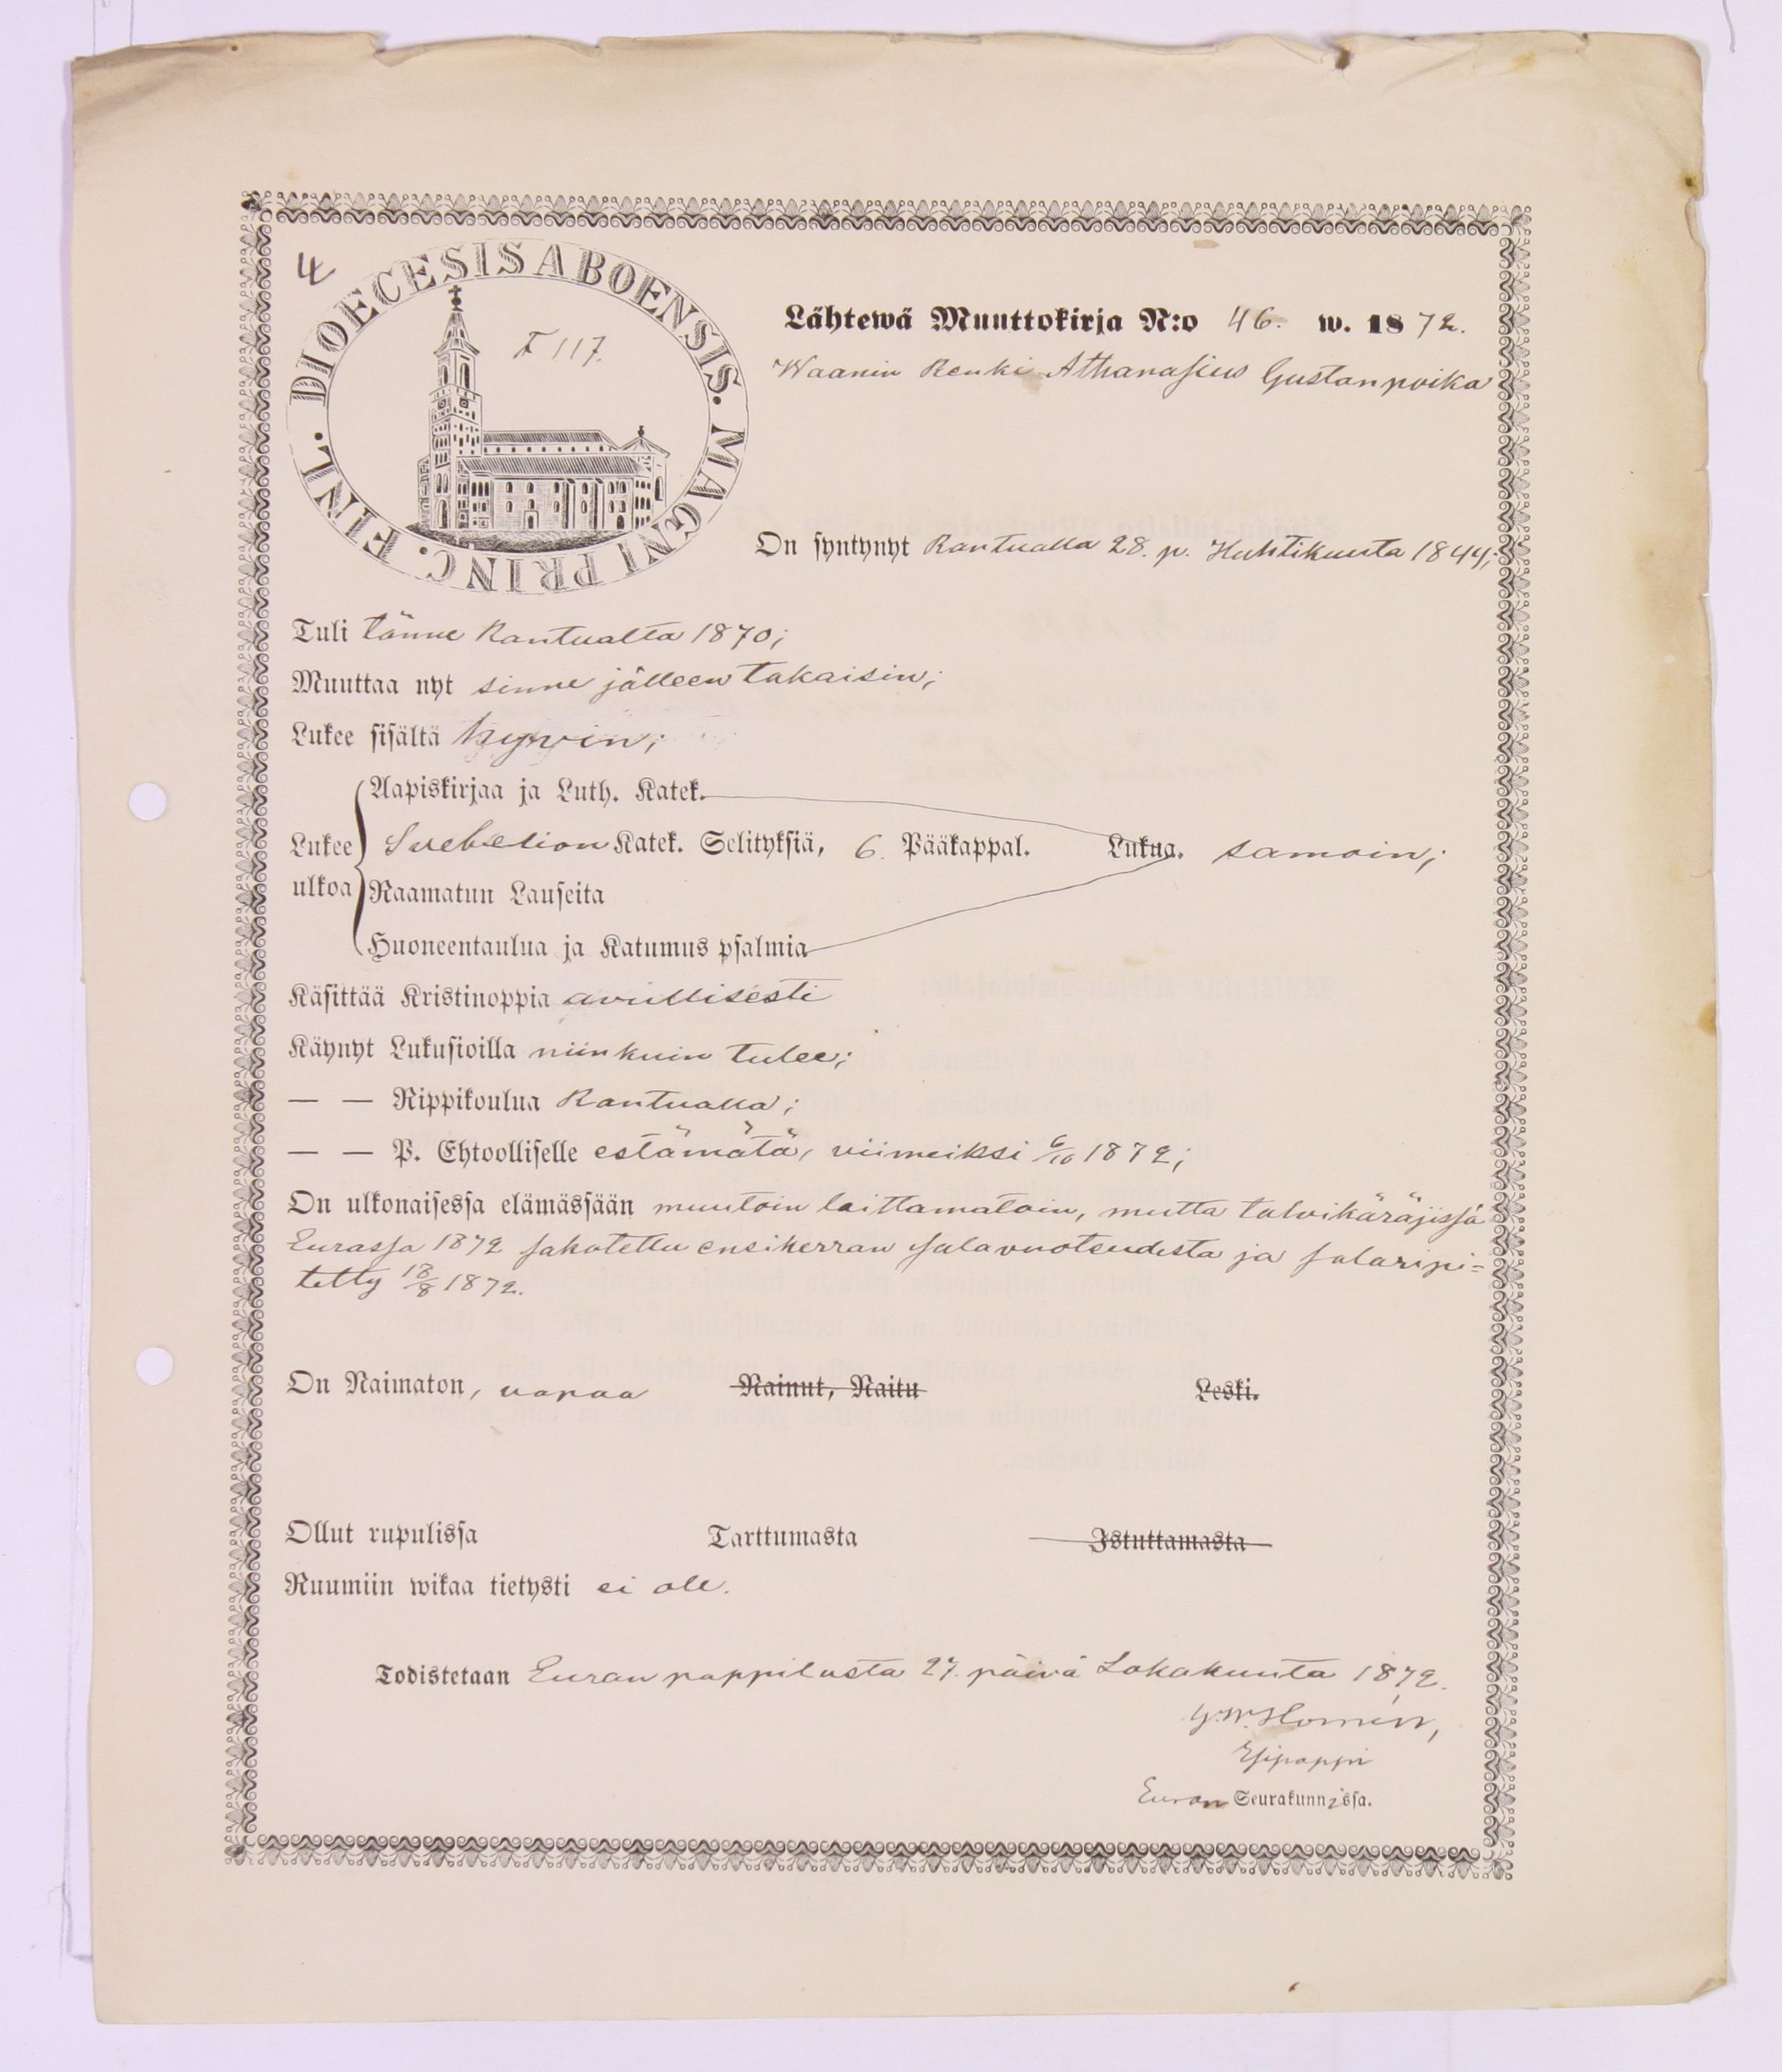 4
DIOECESIS ABOENSIS. MAGNI PRINC. FINL.
F 117.
Lähtewä Muuttokirja N:o 46. w. 1872.
Waanin Renki Athanasius Gustanpoika
On syntynyt Kantualla 28. p. Huhtikuuta 1844;
Tuli tänne Kantualta 1870;
Muuttaa nyt sinne jälleen takaisin;
Lukee sisältä hywin;
Aapiskirjaa ja Luth. Katek.
Lukee ulkoa Svebelion Katek. Selityksiä, 6. Pääkappal. Lukua. samoin;
Raamatun Lauseita
Huoneentaulua ja Katumus psalmia
Käsittää Kristinoppia avullisesti
Käynyt Lukusioilla niinkuin tulee;
— — Rippikoulua Kantualla;
— — P. Ehtoolliselle estämätä, viimeiksi 6/10 1872;
On ulkonaisessa elämässään muutoin laittamatoin, mutta talvikäräjissä
Eurassa 1872 sakotettu ensikerran salavuoteudesta ja salaripi=
tetty 18/8 1872.
On Naimaton, vapaa Nainut, Naitu Leski.
Ollut rupulissa Tarttumasta Istuttamasta
Ruumiin wikaa tietysti ei ole.
Todistetaan Euran pappilasta 27. päivä Lokakuuta 1872.
G. W. Homén,
Esipappi
Euran Seurakunnissa.